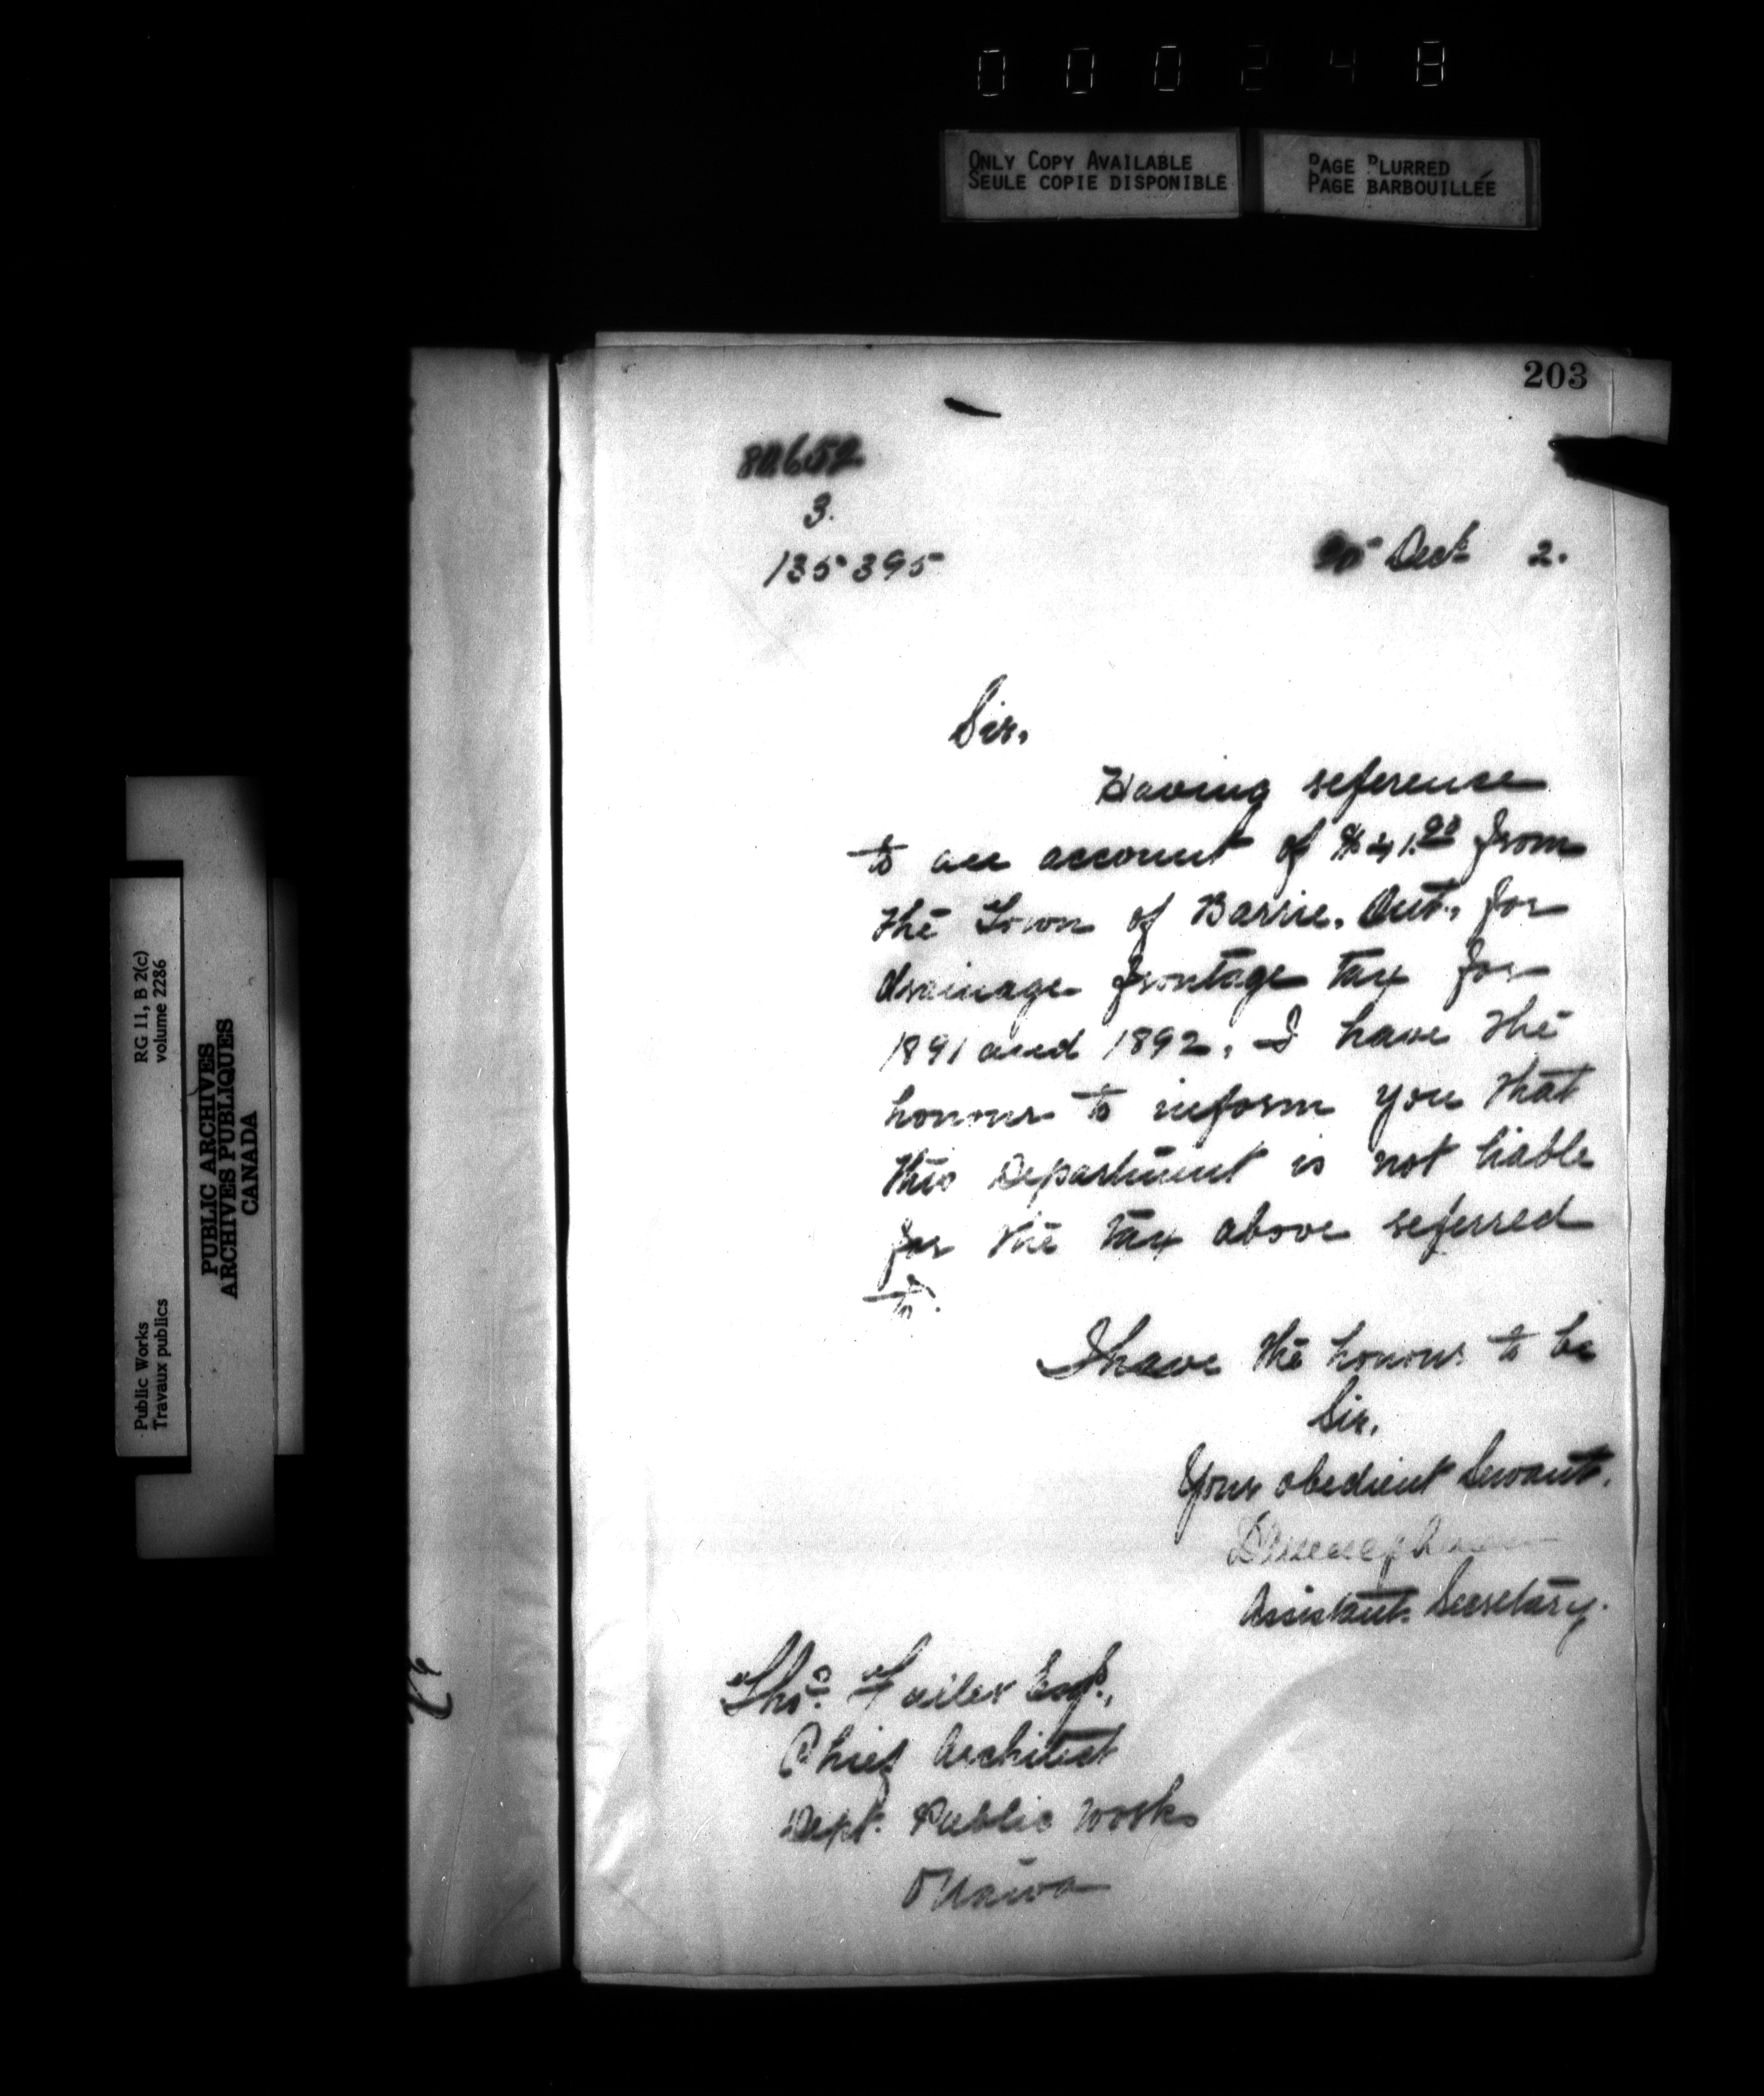 000248
ONLY COPY AVAILABLE
SEULE COPIE DISPONIBLE
PAGE BLURRED
PAGE BARBOUILLÉE
203
3.
135395
Dec 2.
Sir,
Having reference
to an account of from
the Town of Barrie, Ont., for
drainage frontage tax for
1891 and 1892, I have the
honour to inform you that
this Department is not liable
for the tax above referred
to.
I have the honour to be
Sir,
Your obedient Servant,
Assistant Secretary.
Thos. Fuller Esq.,
Chief Architect
Dept. Public Works
Ottawa
Public Works
Travaux publics
RG 11, B 2(c)
volume 2286
PUBLIC ARCHIVES
ARCHIVES PUBLIQUES
CANADA